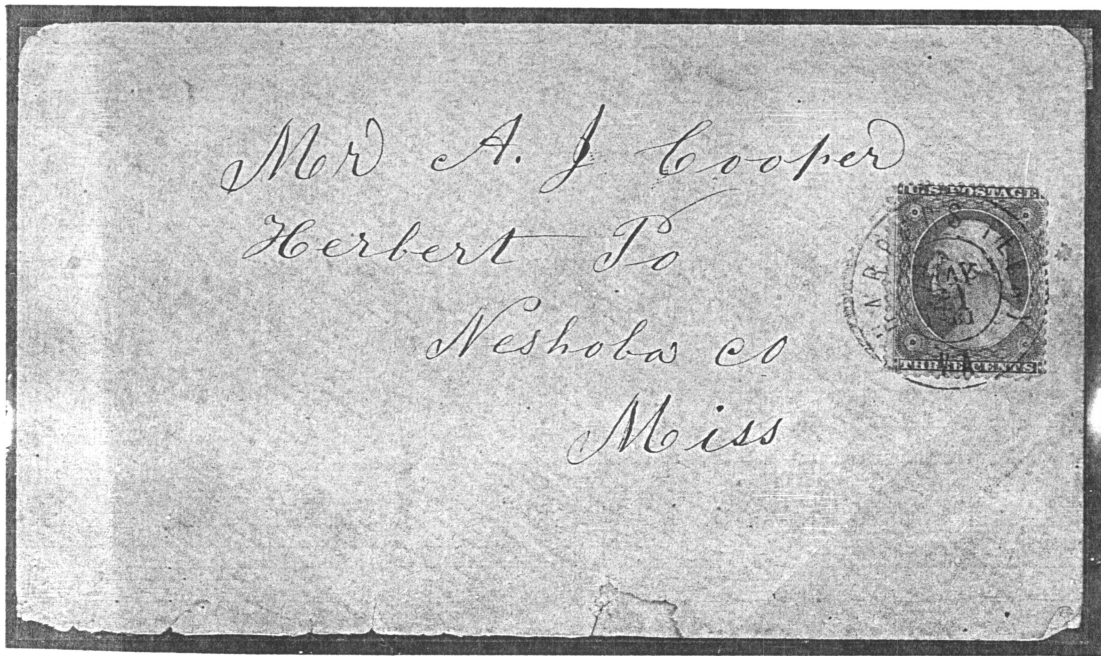 Mr A. J Cooper
Herbert Po
Neshoba co
Miss
U.S. POSTAGE
THREE CENTS